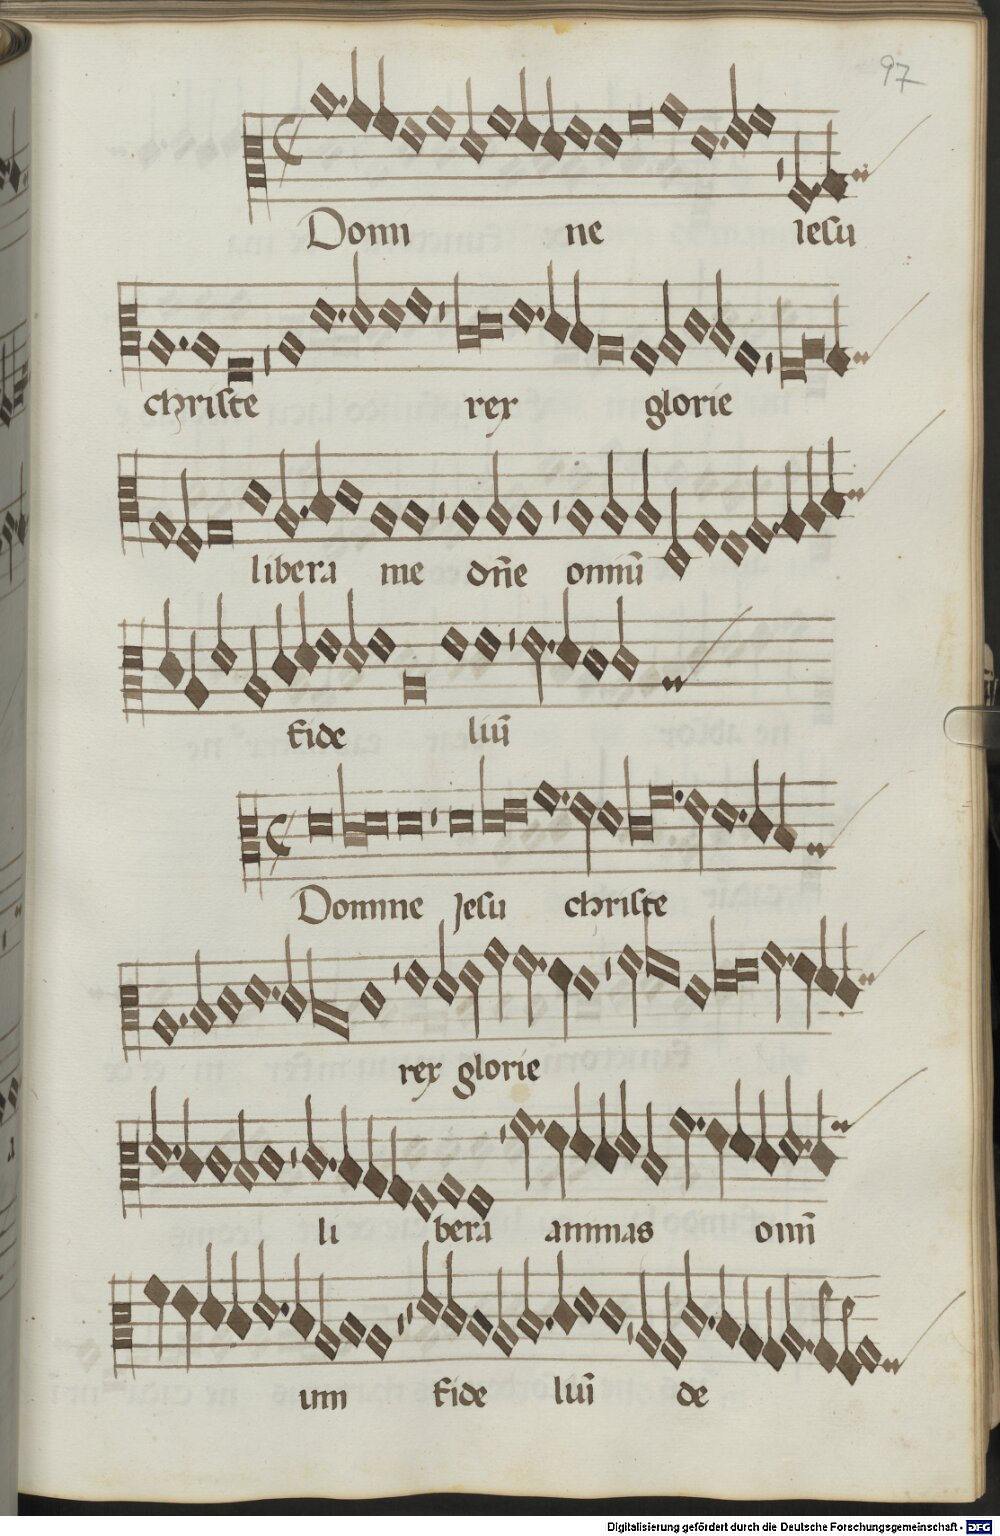 97
Domi ne iesu
christe rex glorie
libera me dn̄e omniū
fide liū
Domine Jesu christe
rex glorie
li bera animas omī
um fide liū de
Digitalisierung gefördert durch die Deutsche Forschungsgemeinschaft - DFG